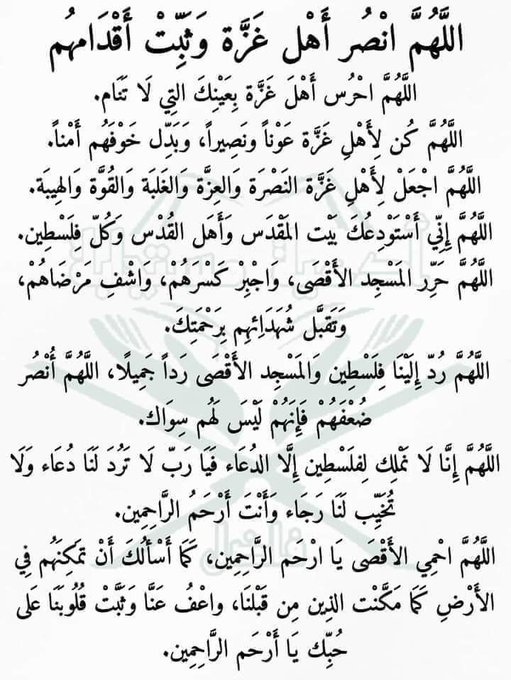 اللَّهُمَّ انْصُر أَهْل غَزَّة وَثَبِّتْ أَقْدَامهُم
اللَّهُمَّ احْرُس أَهْلَ غَزَّة بِعَيْنِكَ التِي لَا تَنَام.
اللَّهُمَّ كُن لِأَهْلِ غَزَّة عَوْناً وَنَصِيراً، وَبَدِّل خَوْفَهُم أَمْناً.
اللَّهُمَّ اجْعَلْ لِأَهْلِ غَزَّة النَصْرَة وَالعِزَّة وَالغَلبَة وَالقُوَّة وَالهِيبَة.
اللَّهُمَّ إِنِّي أَسْتَوْدِعُكَ بَيْت المَقْدَس وَأَهَل القُدْس وَكُلّ فِلَسْطِين.
اللَّهُمَّ حَرِّر المَسْجِد الأَقْصَى، وَاجْبِرْ كَسْرَهُمْ، وَاشْفِ مَرْضَاهُمْ،
وَتَقبَّل شُهَدَائِهِم بِرَحْمَتِكَ.
اللَّهُمَّ رُدّ إِلَيْنَا فِلَسْطِين وَالمَسْجِد الأَقْصَى رَداً جَمِيلًا، اللَّهُمَّ أُنْصُر
ضُعْفَهُمْ فَإِنَهُمْ لَيْسَ لَهُم سِوَاك.
اللَّهُمَّ إِنَّا لَا نَمْلِك لِفلَسْطِين إِلَّا الدُعَاء فَيَا رَبّ لَا تَرُدَ لَنَا دُعَاء وَلَا
تُخَيِّب لَنَا رَجَاء وَأَنْتَ أَرْحَمُ الرَّاحِمِين.
اللَّهُمَّ احْمِي الأَقْصَى يَا ارْحَم الرَّاحِمِين، كَمَا أَسْأَلُكَ أَنْ تمَكِنَهُم فِي
الأَرْضِ كَمَا مَكَّنْت الذِين مِن قَبْلنَا، وَاعْفُ عَنَّا وَثَبَّتْ قُلُوبَنَا عَلَى
حُبِّك يَا أَرْحَم الرَّاحِمِين.